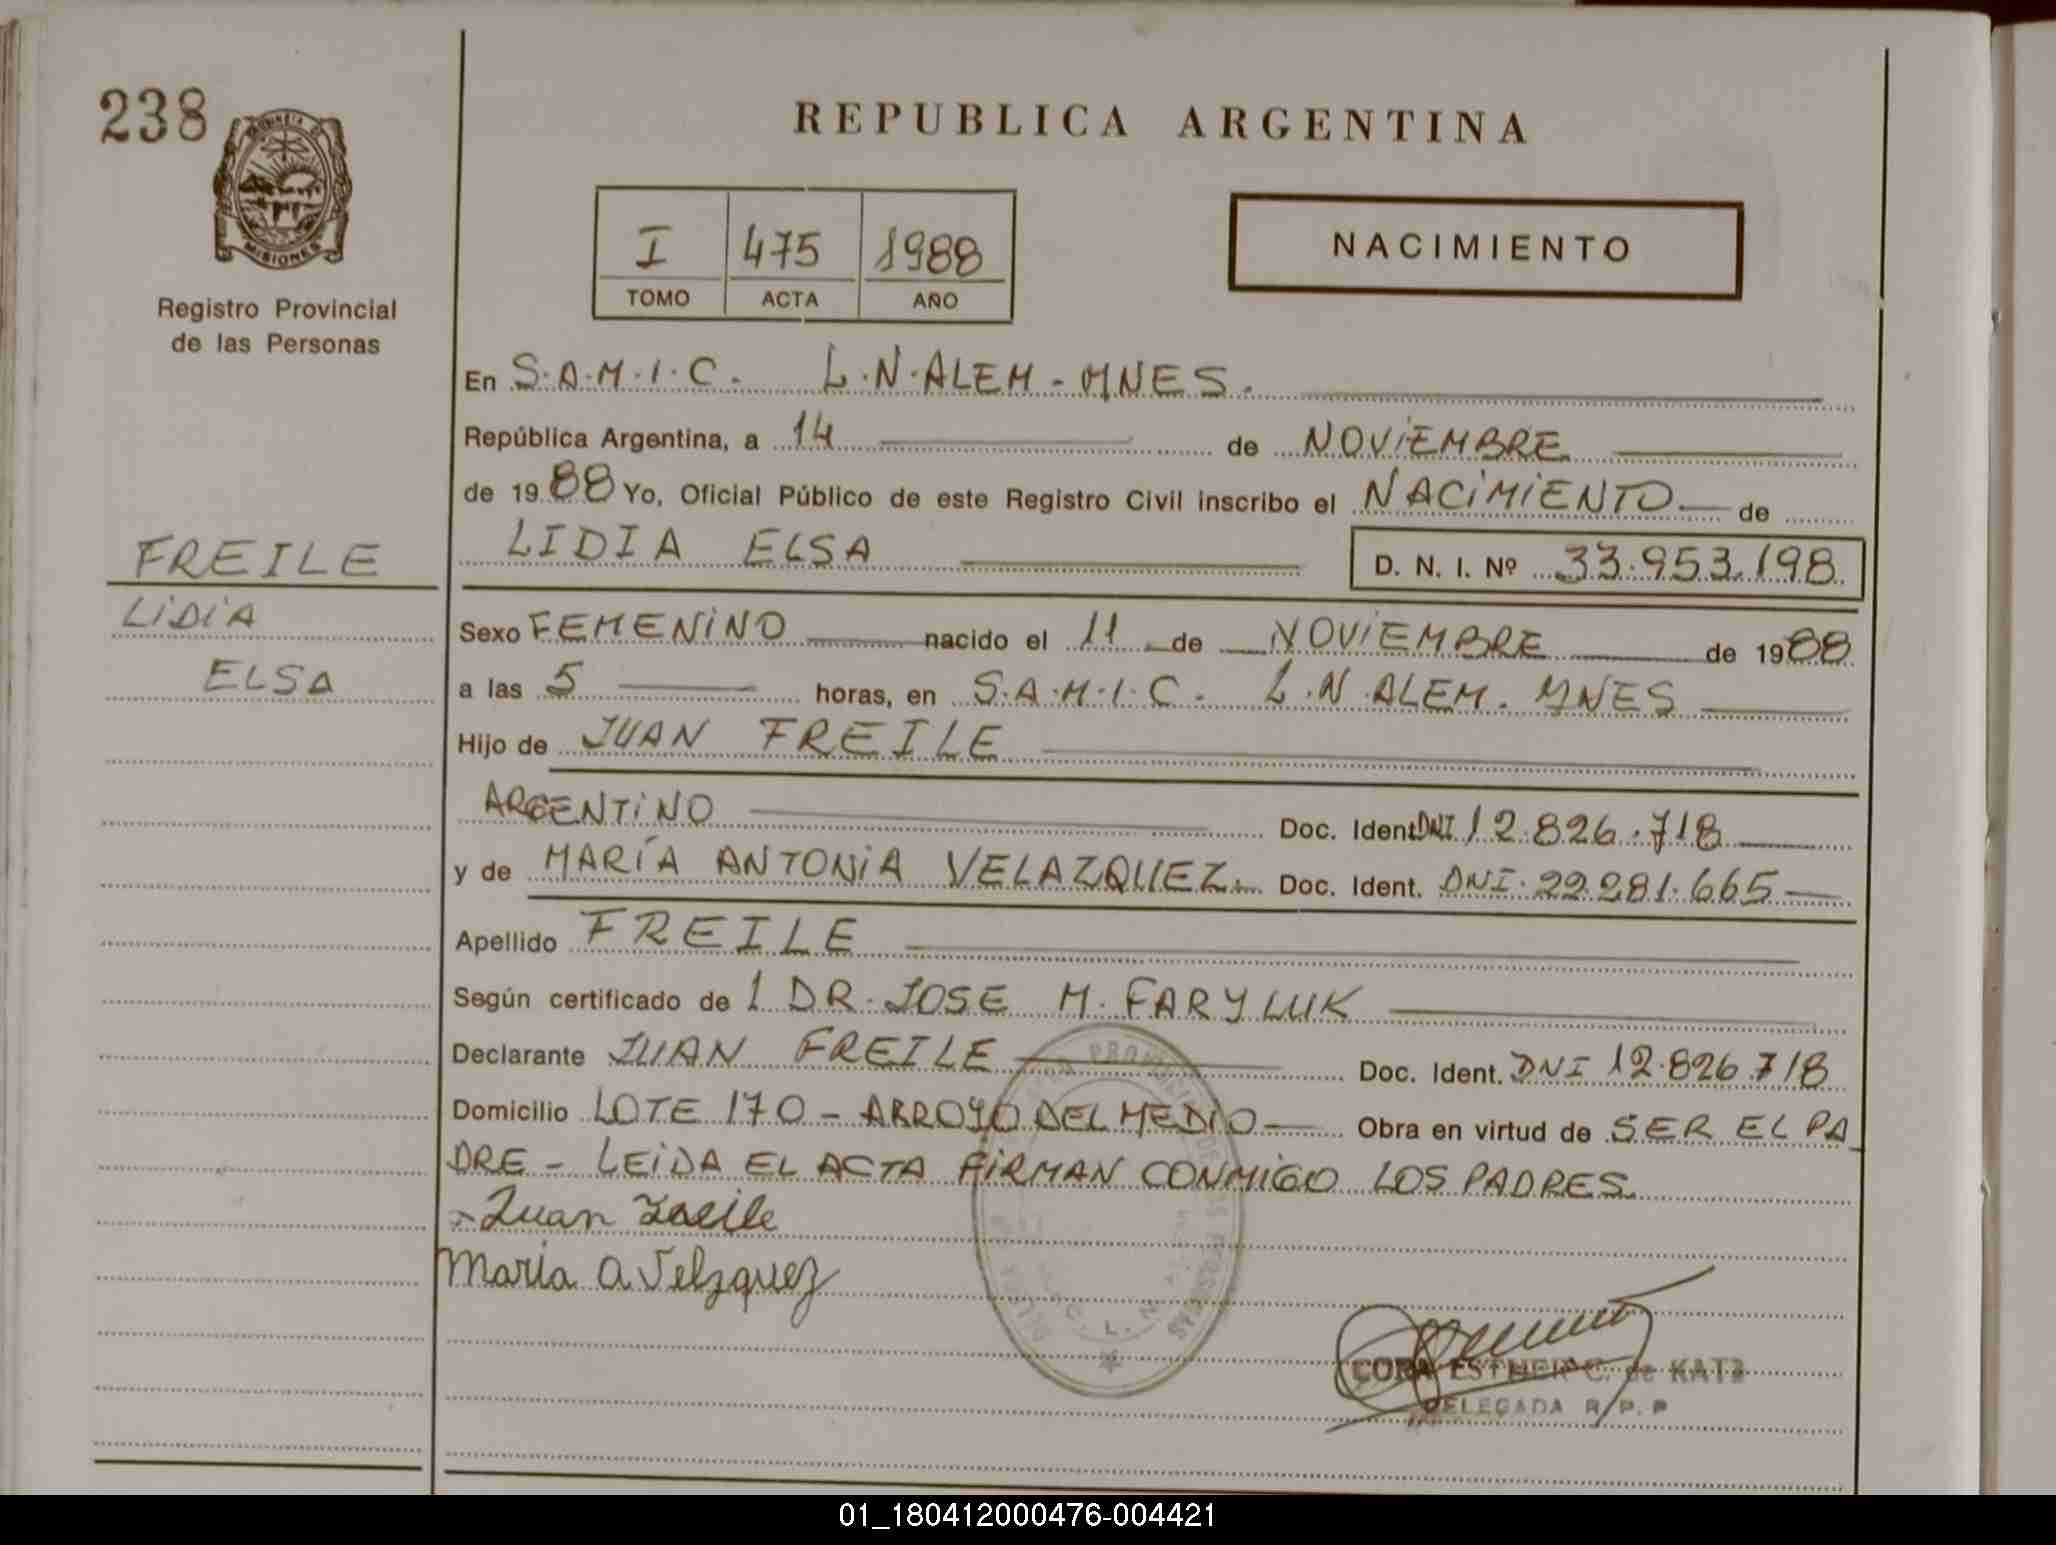 238
PROVINCIA D
MISIONES
Registro Provincial
de las Personas
REPUBLICA ARGENTINA
I 475 1988
TOMO ACTA AÑO
NACIMIENTO
En S.A.M.I.C. L.N.ALEM-MNES.
República Argentina, a 14 de NOVIEMBRE
de 1988 Yo, Oficial Público de este Registro Civil inscribo el NACIMIENTO de
LIDIA ELSA D. N. I. Nº 33.953.198
FREILE
LIDIA
ELSA
Sexo FEMENINO nacido el 11 de NOVIEMBRE de 1988
a las 5 horas, en S.A.M.I.C. L.N.ALEM. MNES
Hijo de JUAN FREILE
ARGENTINO Doc. Ident DNI 12.826.718
y de MARÍA ANTONIA VELAZQUEZ. Doc. Ident. DNI. 22.281.665
Apellido FREILE
Según certificado de L DR. JOSE M. FARYLUK
Declarante JUAN FREILE Doc. Ident. DNI 12.826.718
Domicilio LOTE 170 - ARROYO DEL MEDIO Obra en virtud de SER EL PA_
DRE - LEIDA EL ACTA FIRMAN CONMIGO LOS PADRES.
Juan Freile
Maria A Velzquez
CORA ESTHER C. de KATZ
DELEGADA R. P. P
01_180412000476-004421